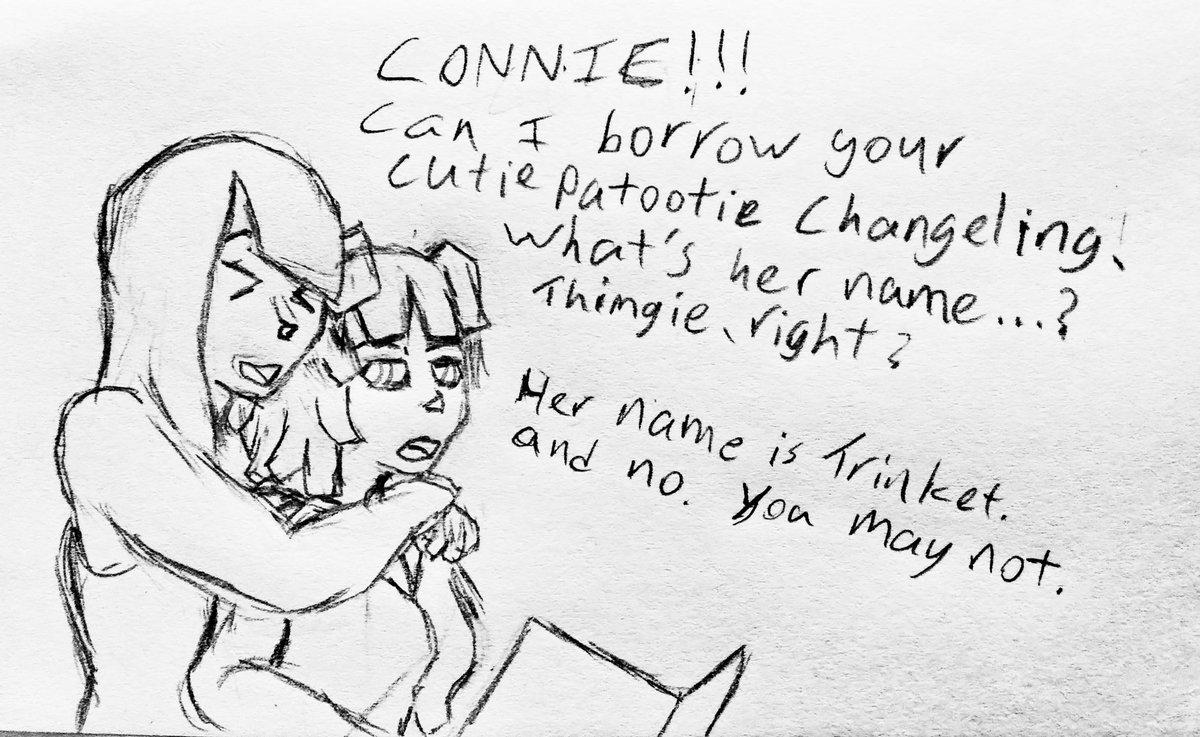 CONNIE!!!
Can I borrow your
cutie patootie Changeling!
What's her name...?
Thimgie, right?
Her name is Trinket.
and no. You may not.